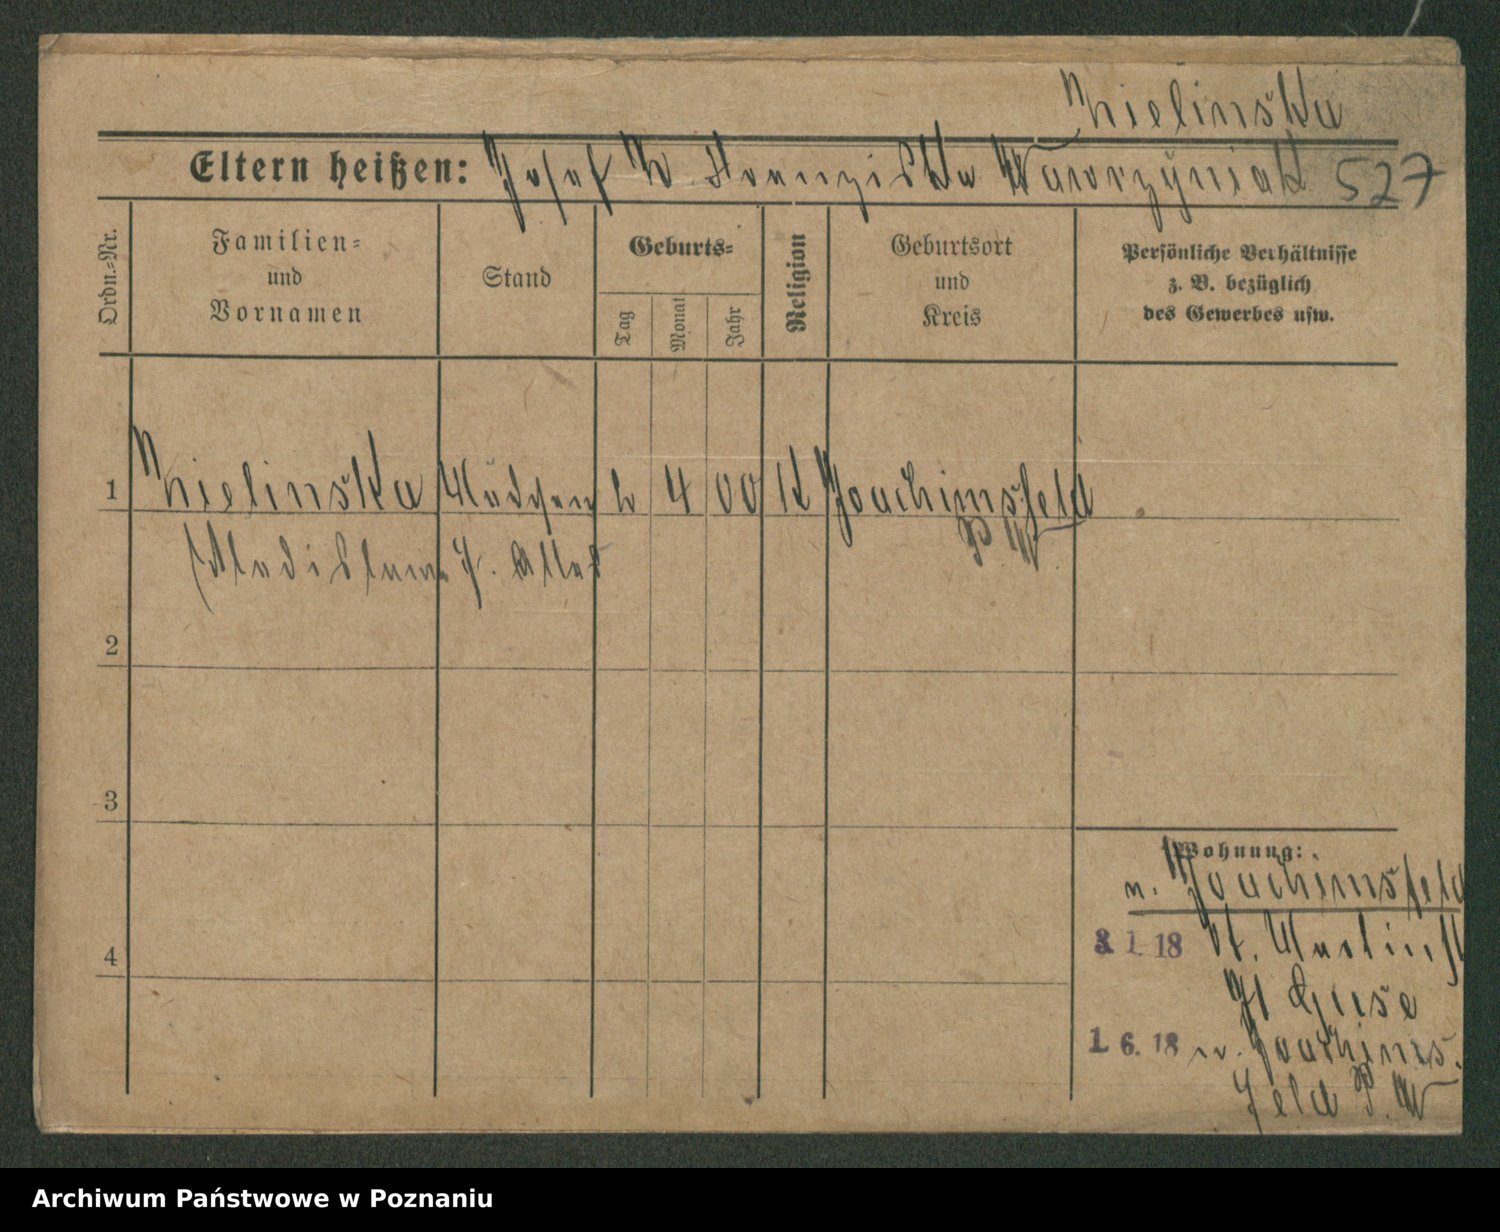 Zielinska
Eltern heißen: Josef u Franziska Wawrzyniak 527
Ordn.=Nr.
Familien= und Vornamen
Stand
Geburts=
Tag
Monat
Jahr
Religion
Geburtsort und Kreis
Persönliche Verhältnisse z. B. bezüglich des Gewerbes usw.
1 Zielinska Mädchen 4 00 K Joachimsfeld
Wladislawa f. Alles P W
2
3
4
Wohnung:
n. Joachimsfeld
3. 1. 18 St. Martinst
1. 6. 18 n. Joachims
feld P. W
Archiwum Państwowe w Poznaniu